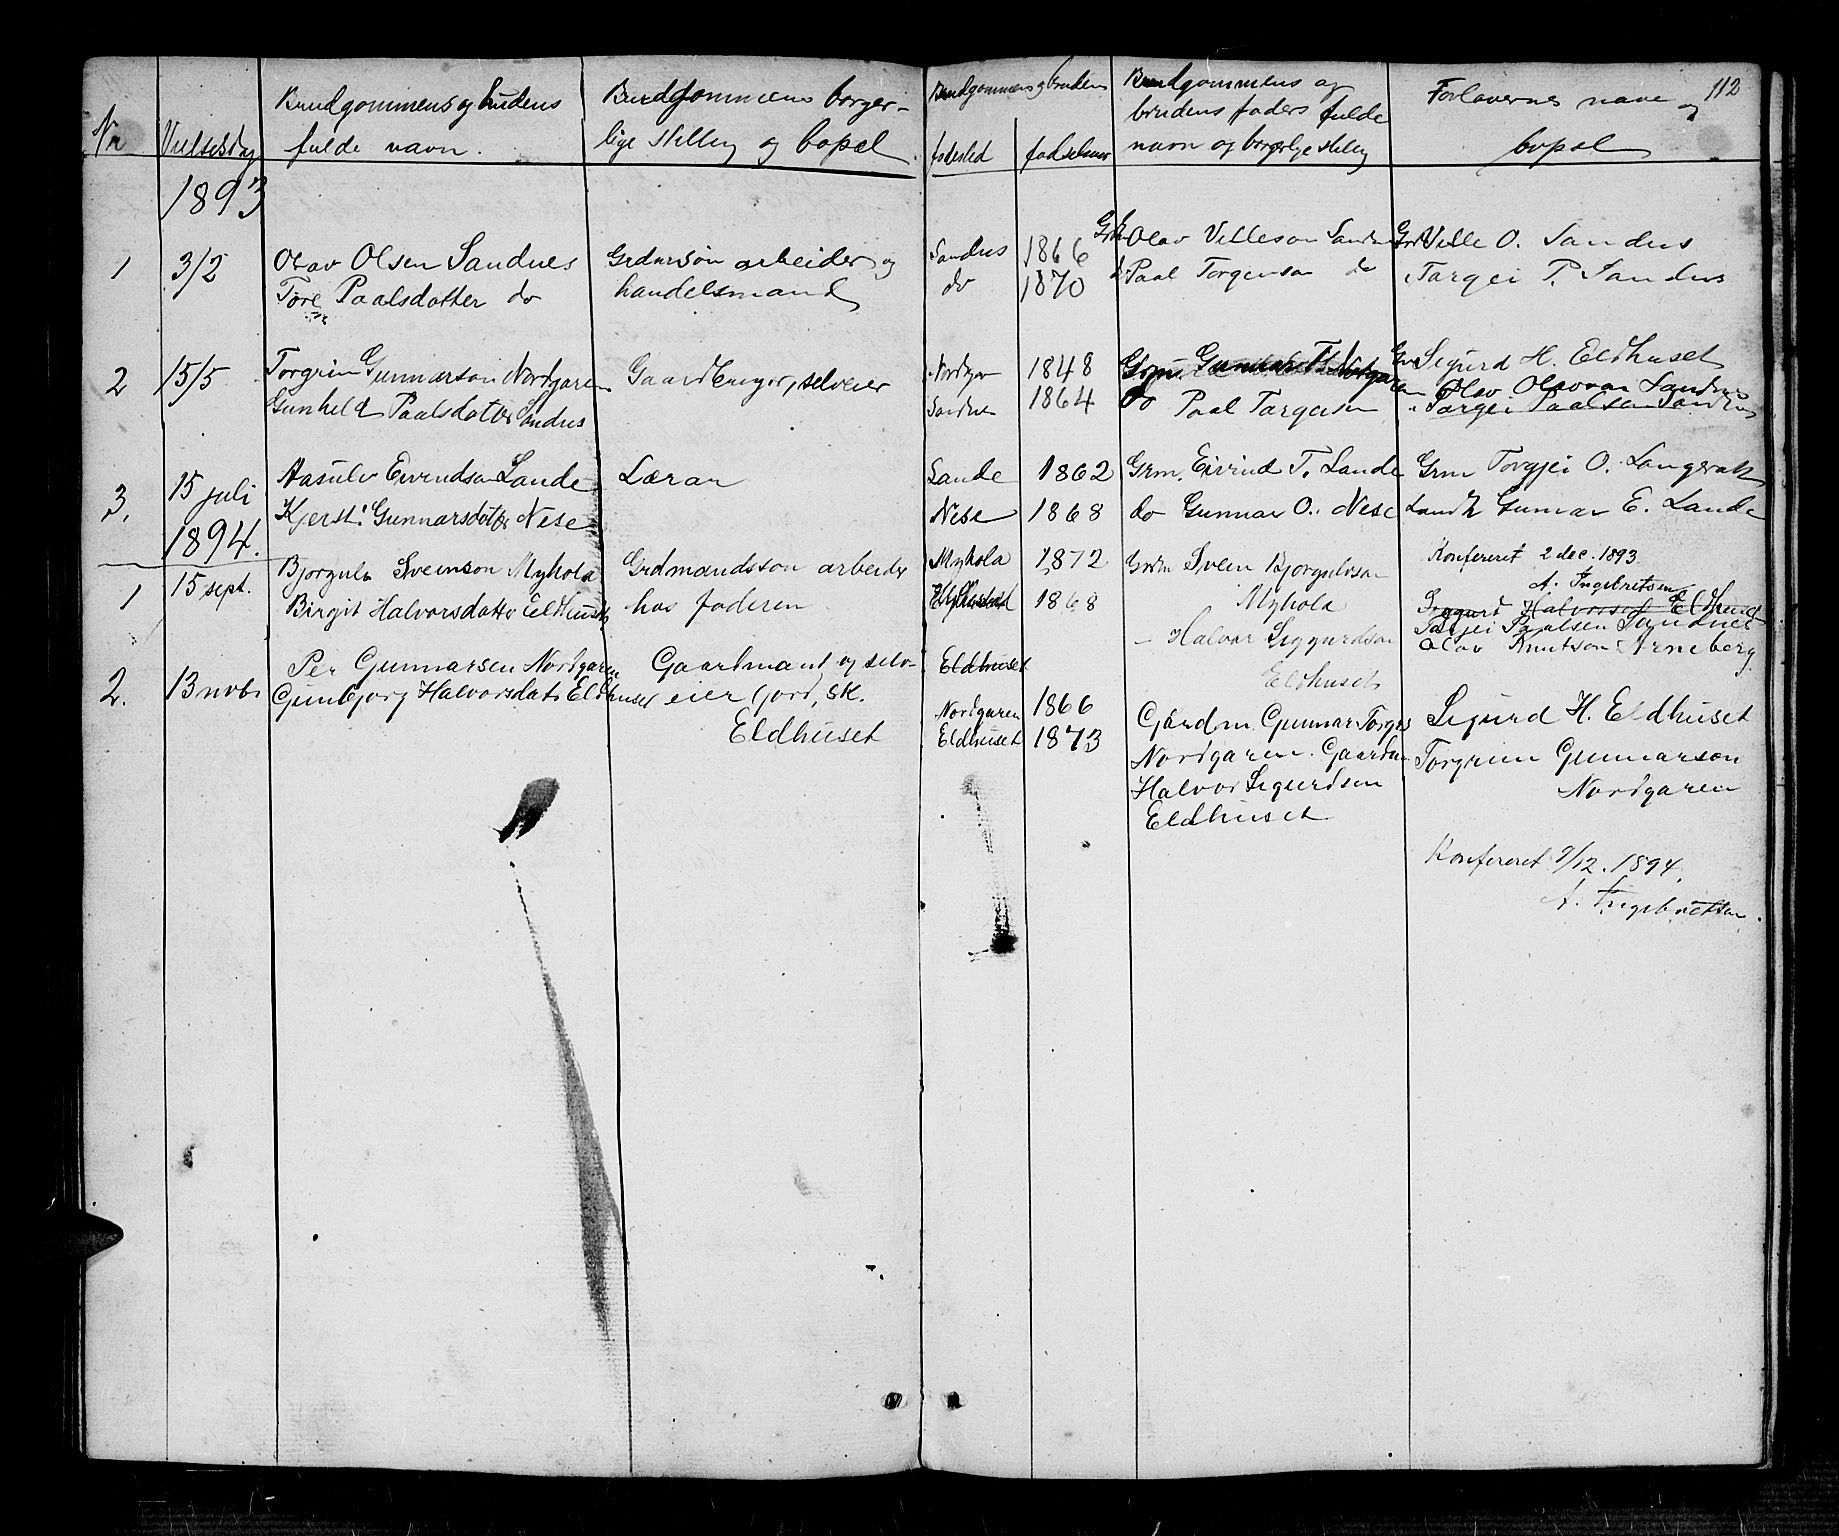 112
Nr
Vielsesdag
Brudgommens og brudens
fulde navn.
Brudgommens borger-
lige stilling og bopæl.
Brudgommens og brudens
fødested
fødselsaar
Brudgommens og
brudens faders fulde
navn og borgerlige stilling
Forlovernes navn og
bopæl
1893
1
3/2
Olav Olsen Sandnes
Tore Paalsdatter do
Grdmrsøn arbeider og
handelsmand
Sandnes 1866
do 1870
Grdm Olav Villeson Sandnes
do Paal Torgeirson do
Grdm Ville O. Sandnes
Targei P. Sandnes
2
15/5
Torgrim Gunnarson Nordgaren
Gunhild Paalsdatter Sandnes
Gaardbruger, selveier
Nordgar 1848
Sandnes 1864
Grm. Gunnar T. Nordgaren
do Paal Targeisen
Grm Sigurd H. Eldhuset
" Olav Olavson Sandnes
Targei Paalsen Sandnes
3.
15 juli
Aasulv Eivendson Lande
Kjersti Gunnarsdatter Nese
Lærar
Lande 1862
Nese 1868
Grm. Eivind T. Lande
do Gunnar O. Nese
Grm Torgjei O. Langerak
Landh Gunnar E. Lande
1894.
Konfereret 2 dec. 1893
A. Ingebretsen
1
15 sept.
Bjorgulv Sveinson Myhola
Birgit Halvorsdatter Eldhuset
Grdmandsson arbeider
hos faderen
Myhola 1872
1868
Eldhuset
Grdm Svein Bjorgulvson
Myhola
- Halvor Siggurdson
Eldhuset
Siggurd Halvorson Eldhuset
Targei Paalsen Sandnes
Olav Knutson Arneberg
2.
13 novbr
Per Gunnarsen Nordgaren
Gunbjorg Halvorsdatr Eldhuset
Gaardmand og selv-
eier (jord, sk.
Eldhuset
Nordgaren 1866
Eldhuset 1873
Gårdm Gunnar Torgrs
Nordgaren. Gaardm
Halvor Sigurdsen
Eldhuset
Sigurd H. Eldhuset
Torgrim Gunnarson
Nordgaren
Konfereret 7/12. 1894,
A. Ingebretsen.